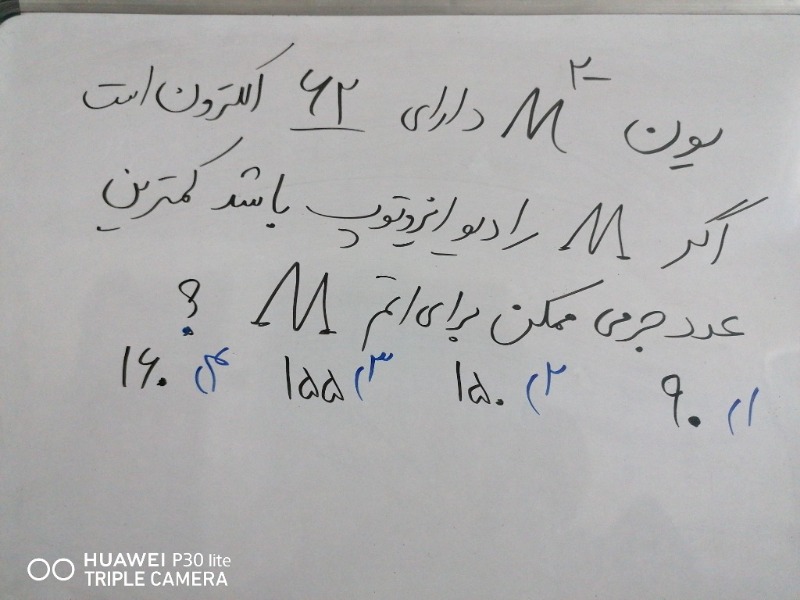 یون M²⁻ دارای ۶۲ الکترون است
اگر M رادیو ایزوتوپ باشد کمترین
عدد جرمی ممکن برای اتم M ؟
۱) ۹۰ ۲) ۱۵۰ ۳) ۱۵۵ ۴) ۱۶۰
HUAWEI P30 lite
TRIPLE CAMERA